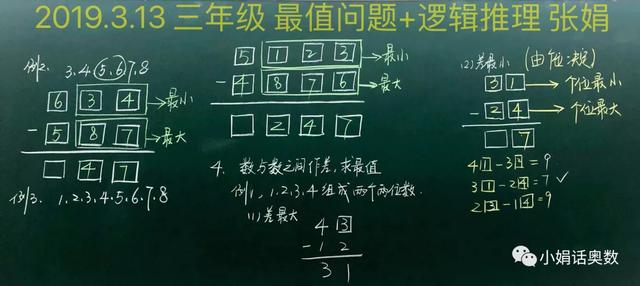 2019.3.13 三年级 最值问题+逻辑推理 张娟
例2、3.4(5.6)7.8
6 3 4 →最小
- 5 8 7 →最大
4 7
例3、1.2.3.4.5.6.7.8
5 1 2 3 →最小
- 4 8 7 6 →最大
2 4 7
4、数与数之间作差,求最值
例1、1.2.3.4组成两个两位数.
(1)差最大
4 3
- 1 2
3 1
(2)差最小
3 1 →个位最小
- 2 4 →个位最大
7
41-32=9
31-24=7 ✓
23-14=9
小娟话奥数